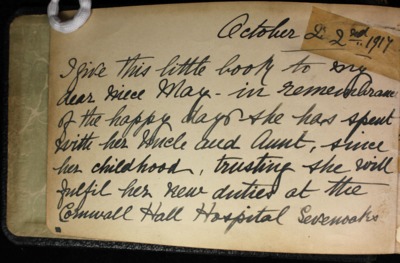 October 2nd 1917
I give this little book to my
dear niece May - in remembrance
of the happy days she has spent
with her Uncle and Aunt, since
her childhood, trusting she will
fulfil her new duties at the
Cornwall Hall Hospital Sevenoaks